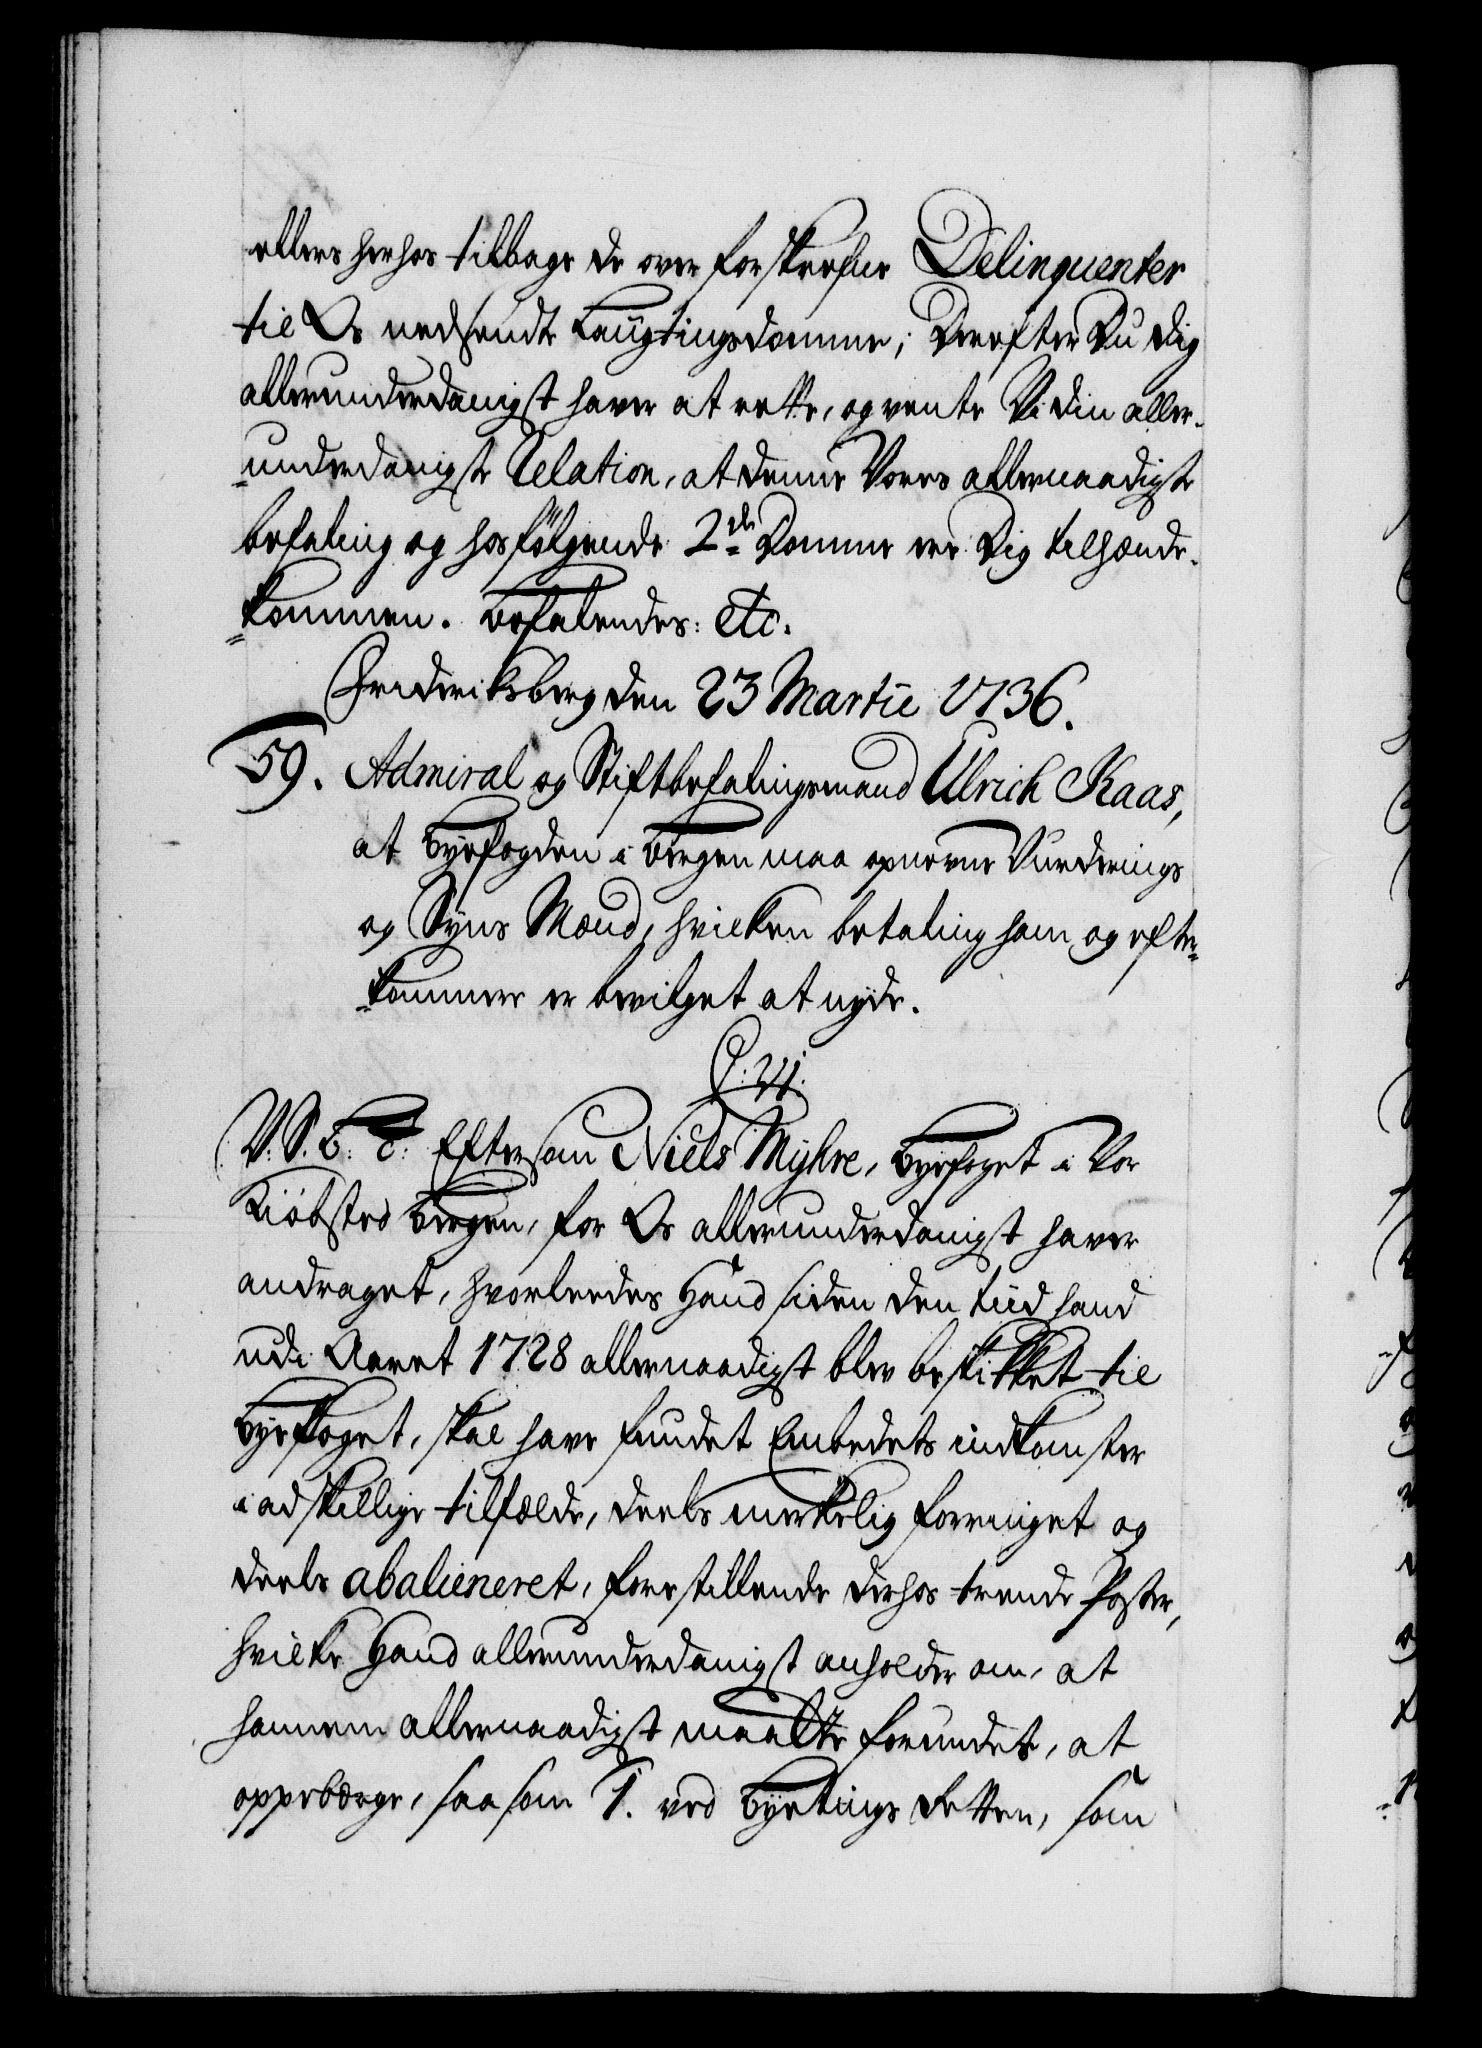 ellers herhos tilbage de over forskrefne Delinquenter
til Os nedsendte Laugtingsdomme; Derefter Du dig
allerunderdanigst haver at rette, og vente Vi din aller-
underdanigste Relation, at denne Vores allernaadigste
befaling og hosfølgende 2de Domme ere Dig tilhænde-
kommen. Befalendes: etc.
Frideriksberg den 23 Martii 1736.
59. Admiral og Stiftbefalingsmand Ulrich Kaas,
at Byefogden i Bergen maa opnevne Vurderings
og Syns Mænd, hvilken betaling ham og efter-
kommere er bevilget at nyde.
C: VI.
V. S. B. T: Eftersom Niels Myhre, Byefoget i Vor
Kiøbsted Bergen, for Os allerunderdanigst haver
andraget, hvorledes Hand siden den tiid hand
udi Aaret 1728 allernaadigst blev beskikket til
Byefoget, skal have fundet Embedets indkomster
i adskillige tilfælde, deels merkelig forringet og
deels abalieneret, forestillende derhos trende Poster,
hvilke Hand allerunderdanigst anholder om, at
hannem allernaadigst maatte forundes, at
oppebærge, saasom 1. ved Byetings Retten, som